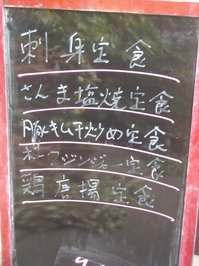 刺身定食
さんま塩焼定食
豚キムチ炒め定食
ポークジンジャー定食
鶏唐揚定食